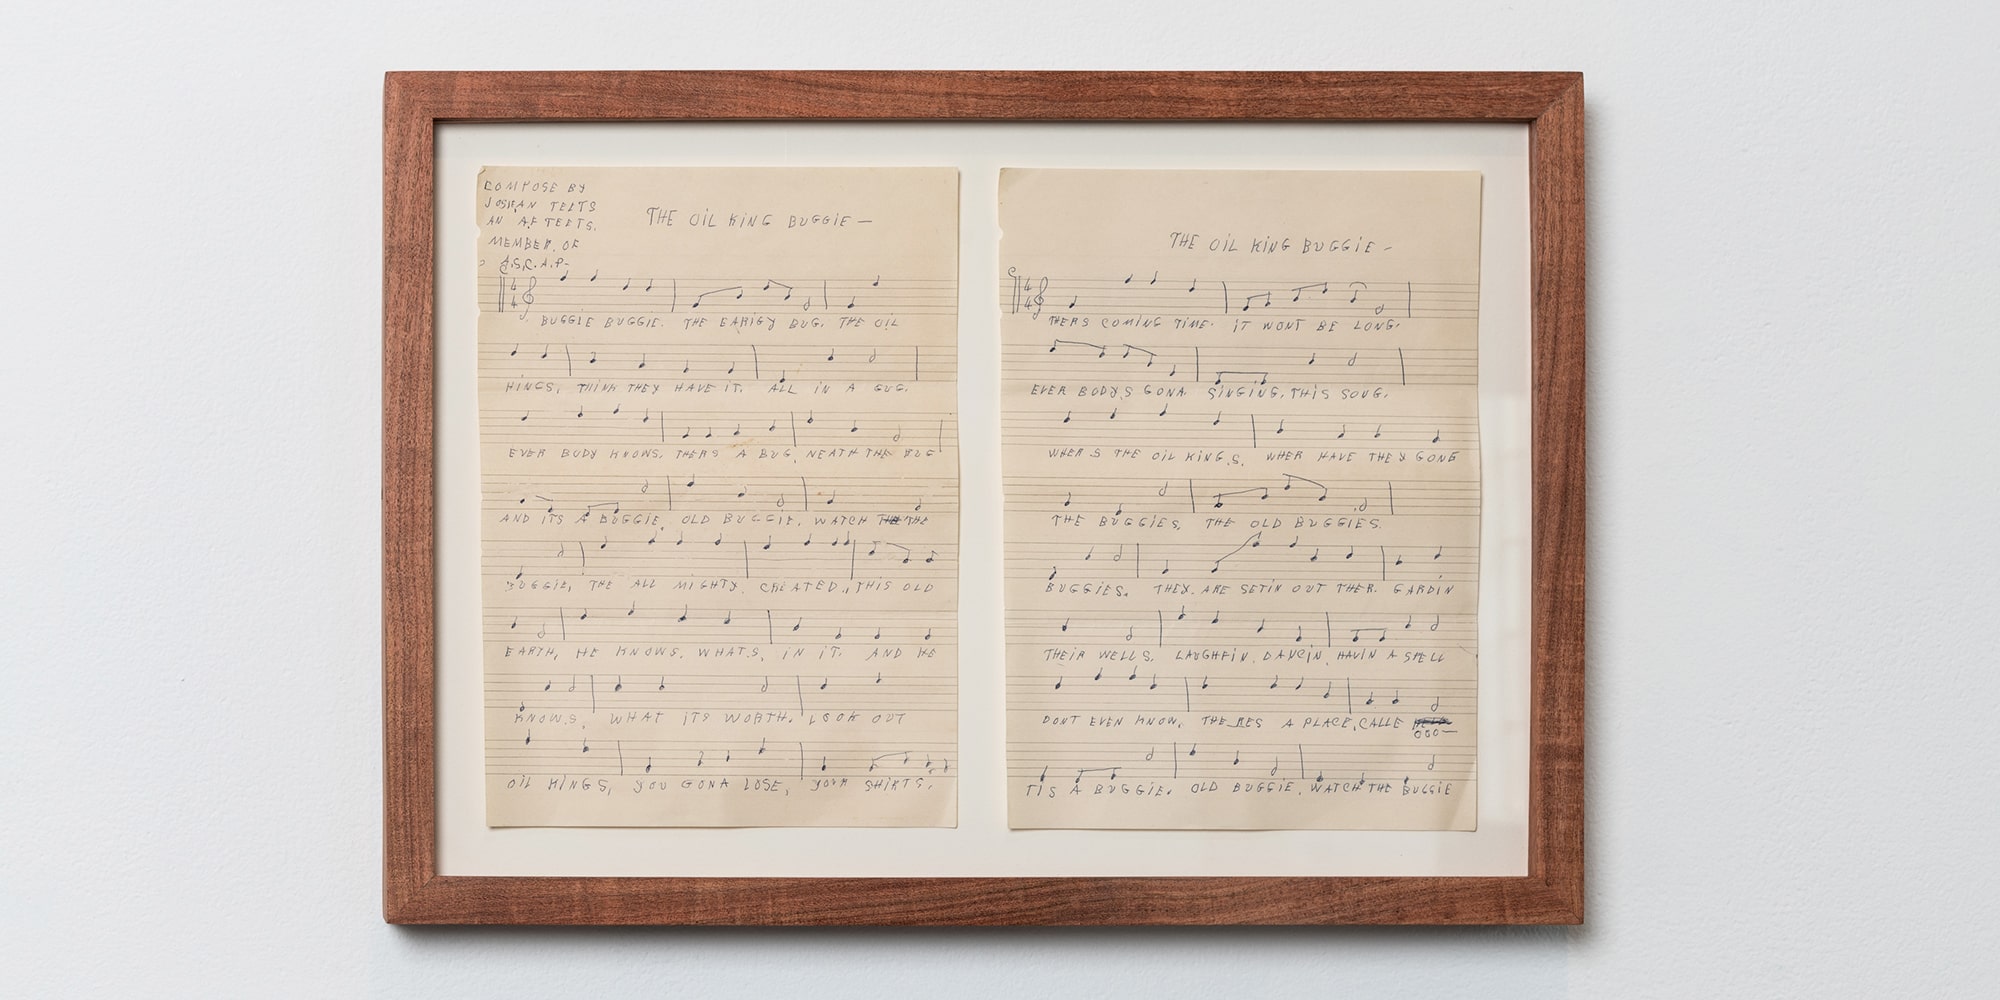 COMPOSE BY
JOSEAN TEETS
AN A.F TEETS.
MEMBER OF
A.S.C.A.P-
THE OIL KING BUGGIE —
4
4
BUGGIE BUGGIE. THE EARIGY BUG. THE OIL
KINGS, THINK THEY HAVE IT. ALL IN A GUG.
EVER BODY KNOWS. THERS A BUG, NEATH THE RUG
AND ITS A BUGGIE, OLD BUGGIE. WATCH THE THE
BUGGIE, THE ALL MIGHTY CREATED., THIS OLD
EARTH, HE KNOWS. WHATS, IN IT. AND HE
KNOWS. WHAT ITS WORTH. LOOK OUT
OIL KINGS, YOU GONA LOSE, YOUR SHIRTS.
THE OIL KING BUGGIE -
4
4
THERS COMING TIME. IT WONT BE LONG.
EVER BODY,S GONA. SINGING, THIS SONG.
WHER S THE OIL KING,S, WHER HAVE THEY GONE
THE BUGGIES, THE OLD BUGGIES.
BUGGIES. THEY. ARE SETIN OUT THER. GARDIN
THEIR WELLS. LAUGHFIN. DANCIN, HAVIN A SPELL
DONT EVEN KNOW. THE RES A PLACE, CALLE HELL
OOO—
TIS A BUGGIE. OLD BUGGIE. WATCH THE BUGGIE